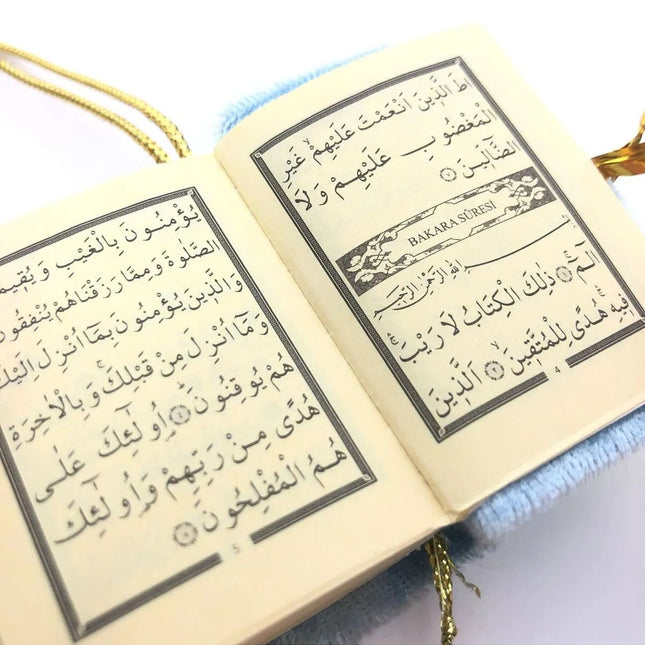 طَ الَّذِينَ اَنْعَمْتَ عَلَيْهِمْ غَيْرِ
الْمَغْضُوبِ عَلَيْهِمْ وَلَا
الضَّالِّينَ ﴿٧﴾
BAKARA SÛRESİ
بِسْمِ اللهِ الرَّحْمٰنِ الرَّحِيمِ
الٓمٓ ﴿١﴾ ذٰلِكَ الْكِتَابُ لَا رَيْبَۚ
فِيهِۚ هُدًى لِلْمُتَّقِينَۙ ﴿٢﴾ اَلَّذِينَ
4
يُؤْمِنُونَ بِالْغَيْبِ وَيُقِيمُ
الصَّلٰوةَ وَمِمَّا رَزَقْنَاهُمْ يُنْفِقُونَ
وَالَّذِينَ يُؤْمِنُونَ بِمَٓا اُنْزِلَ اِلَيْكَ
وَمَٓا اُنْزِلَ مِنْ قَبْلِكَۚ وَبِالْاٰخِرَةِ
هُمْ يُوقِنُونَۜ ﴿٤﴾ اُو۬لٰٓئِكَ عَلٰى
هُدًى مِنْ رَبِّهِمْ وَاُو۬لٰٓئِكَ
هُمُ الْمُفْلِحُونَ ﴿٥﴾
5